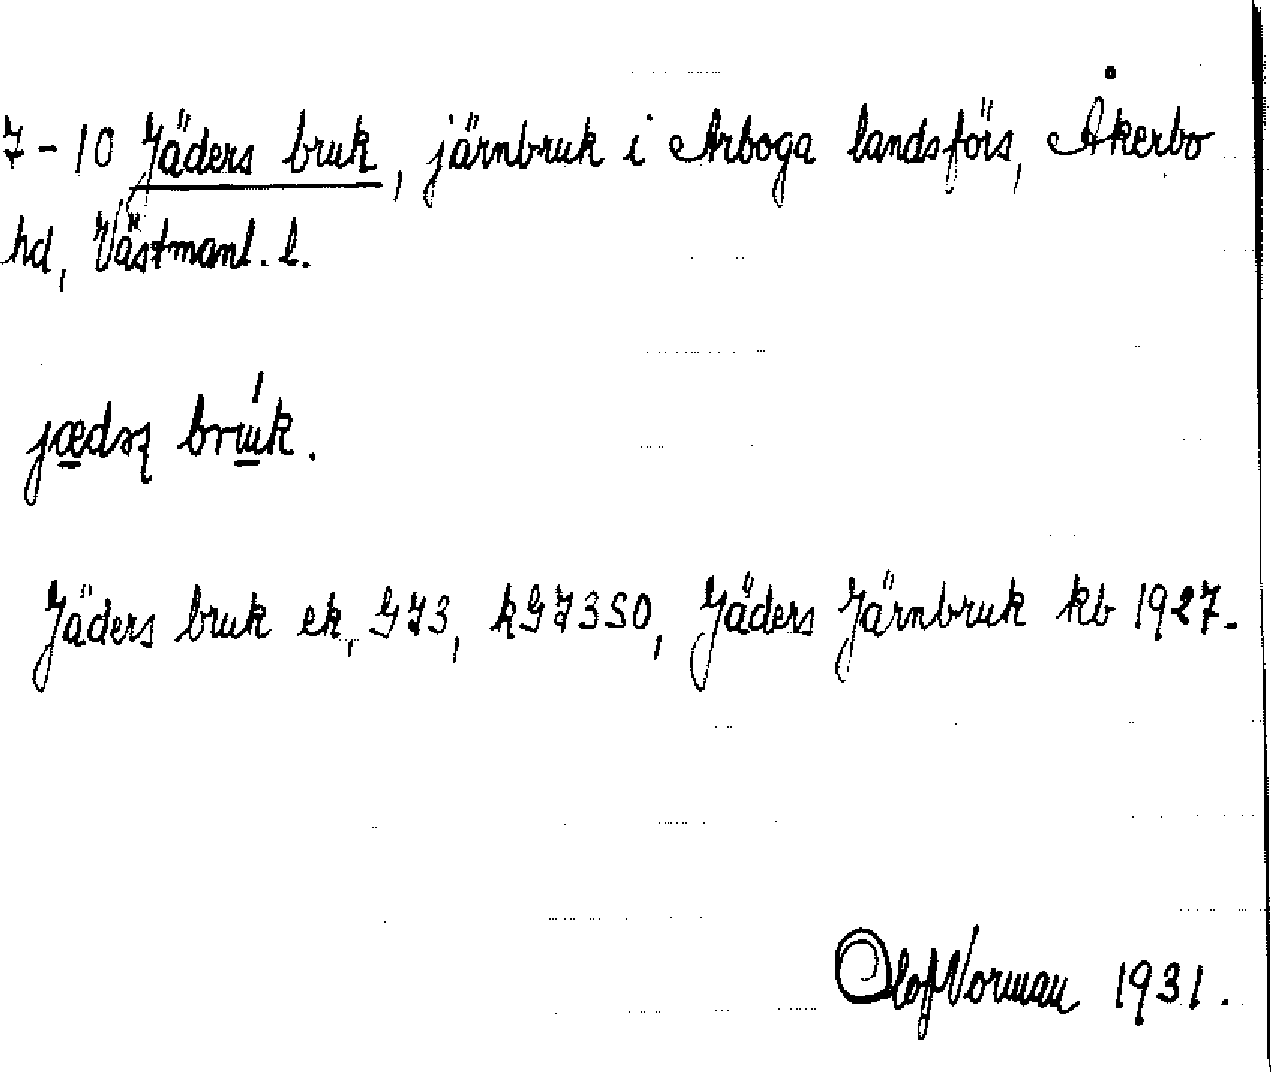 7-10 Jäders bruk, järnbruk i Arboga landsförs, Åkerbo
hd, Västmanl. l.
jædsʂ brúk.
Jäders bruk ek, GJ3, kGJ3SO, Jäders Järnbruk kb 1927.
Olof Norman 1931.